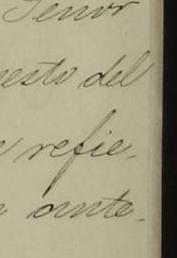 Señor
uesto del
refie-
ante-